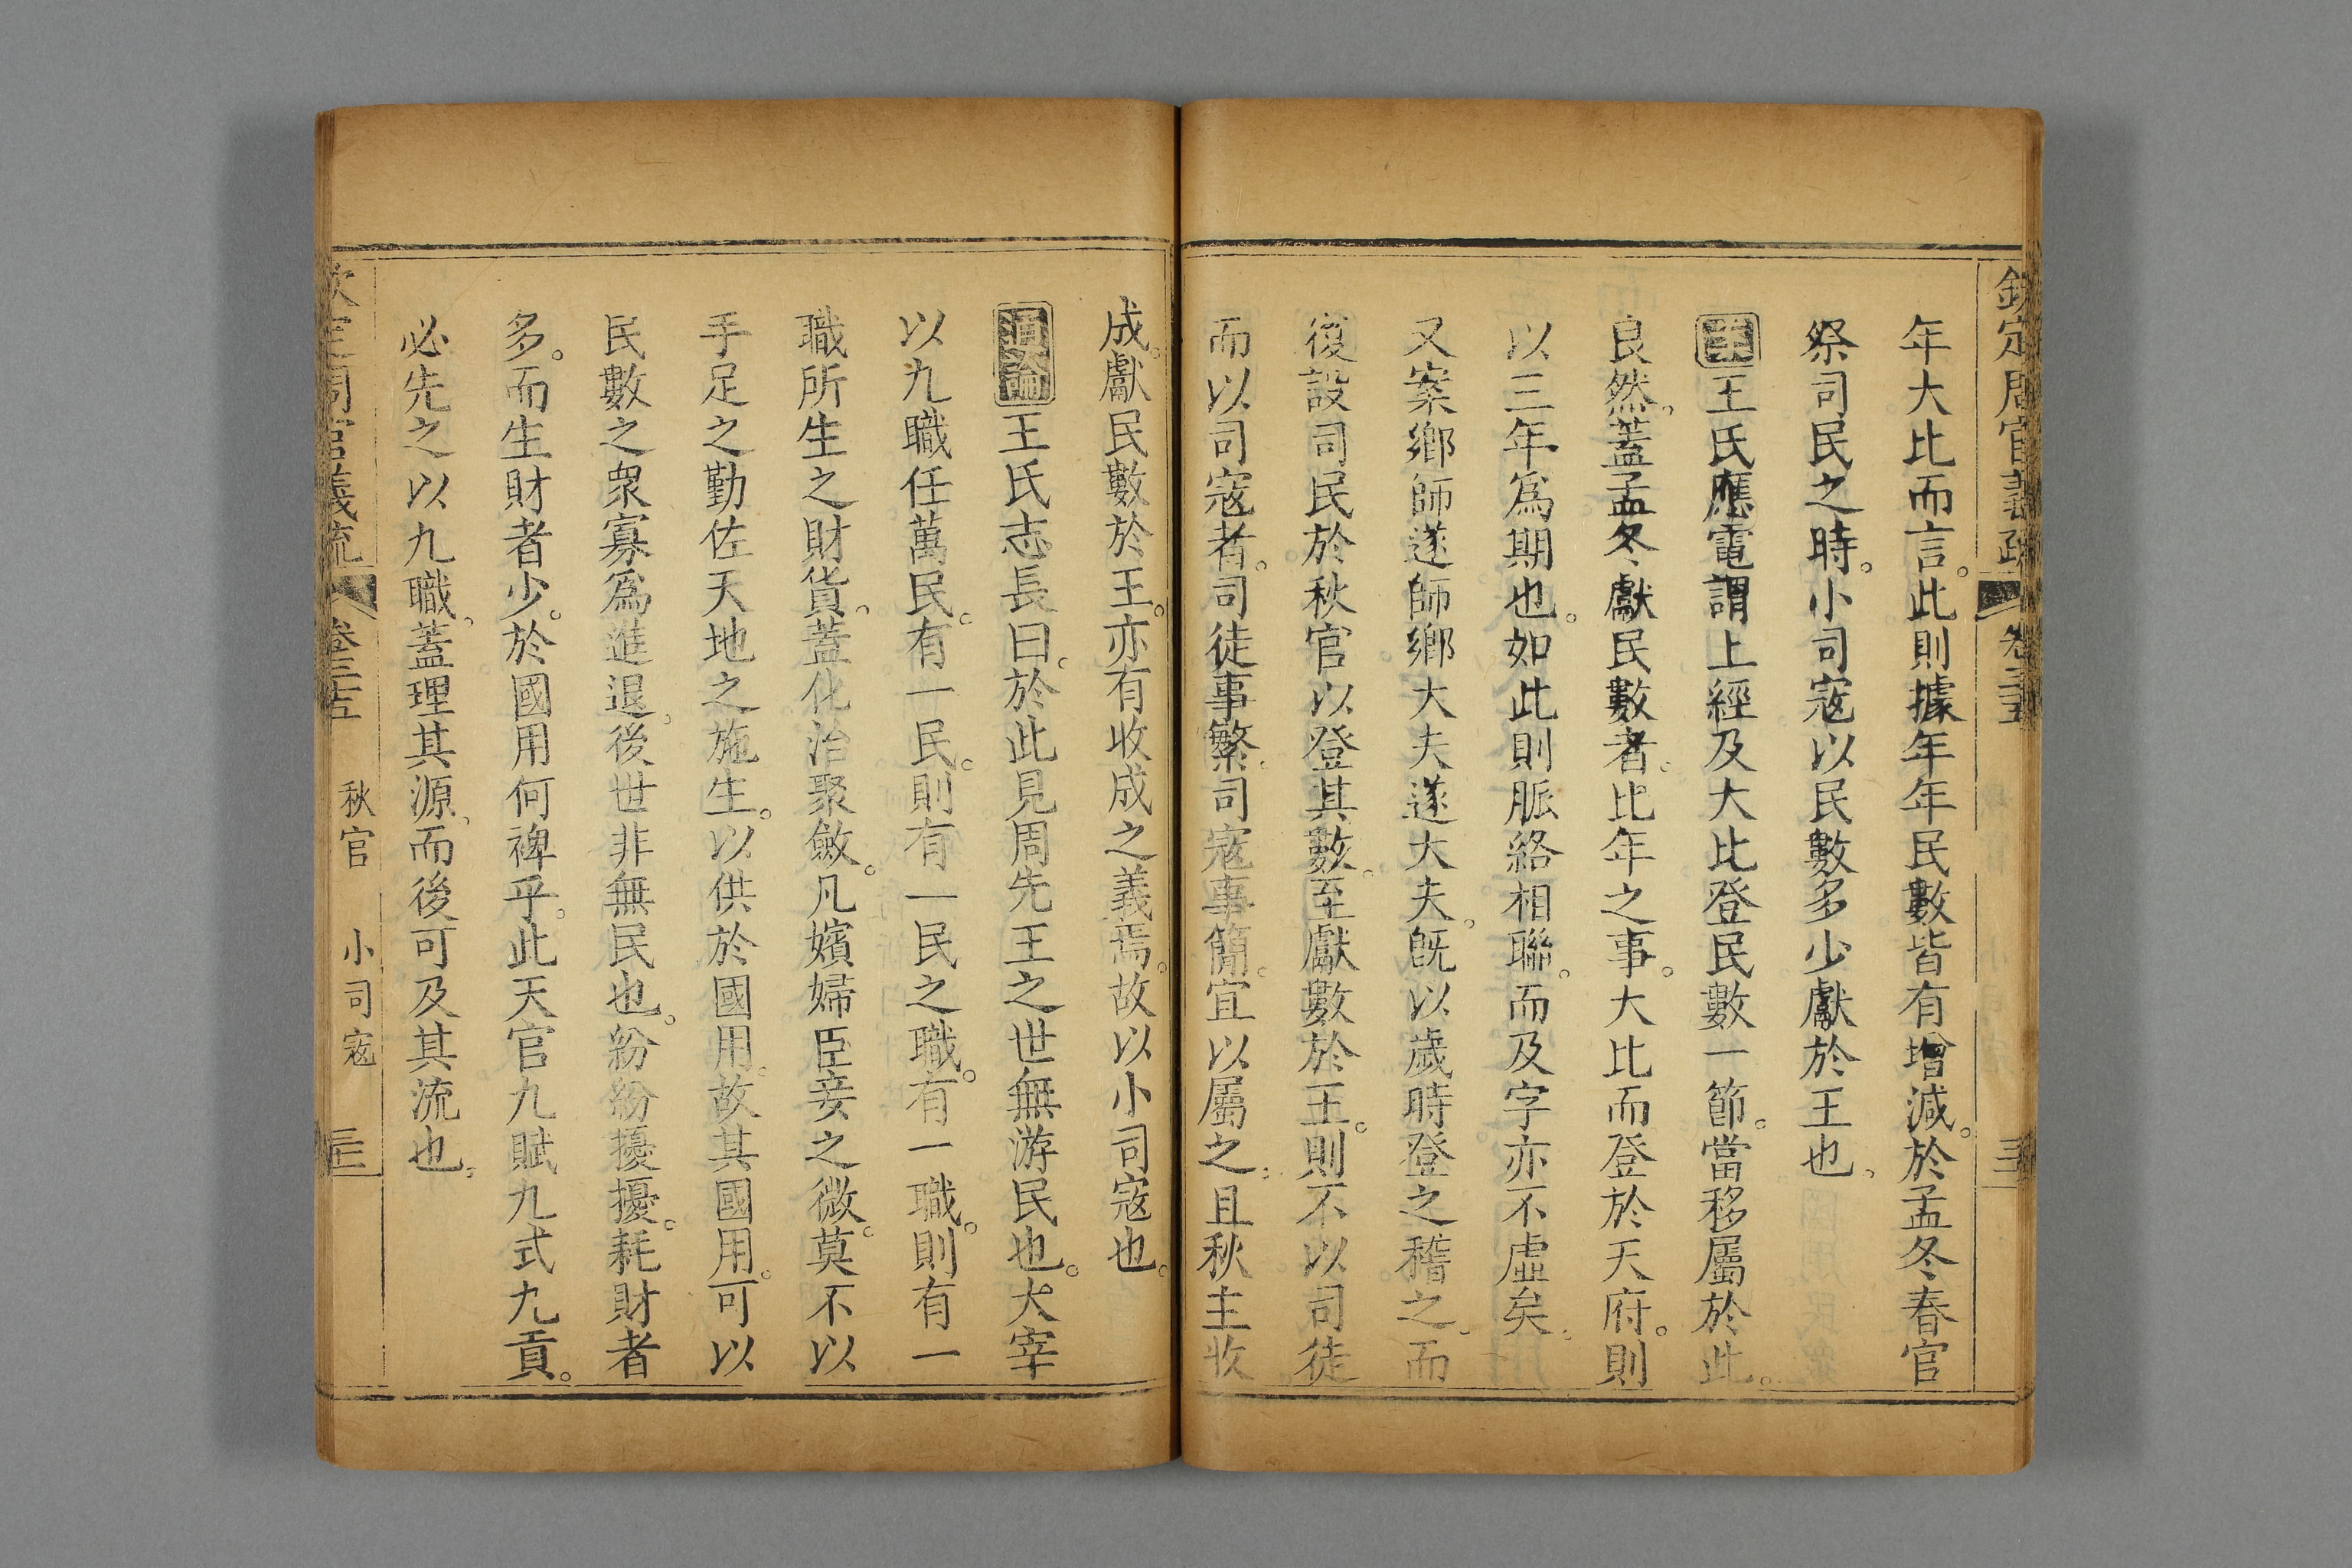 欽定周官義疏 卷三十五
年大比而言。此則據年年民數皆有增減。於孟冬春官
祭司民之時。小司寇以民數多少獻於王也、
案王氏應電謂上經及大比登民數一節。當移屬於此。
良然。蓋孟冬獻民數者。比年之事。大比而登於天府。則
以三年爲期也。如此則脈絡相聯。而及字亦不虛矣、
又案鄉師遂師鄉大夫遂大夫。旣以歲時登之稽之、而
復設司民於秋官以登其數。至獻數於王。則不以司徒
而以司寇者。司徒事繁、司寇事簡。宜以屬之、且秋主收
成。獻民數於王。亦有收成之義焉。故以小司寇也。
通論王氏志長曰。於此見周先王之世無游民也。大宰
以九職任萬民。有一民。則有一民之職。有一職。則有一
職所生之財貨。蓋化治聚斂。凡嬪婦臣妾之微。莫不以
手足之勤佐天地之施生。以供於國用。故其國用。可以
民數之衆寡爲進退。後世非無民也。紛紛擾擾。耗財者
多。而生財者少。於國用何裨乎。此天官九賦九式九貢。
必先之以九職。蓋理其源、而後可及其流也、
欽定周官義疏 卷三十五 秋官 小司寇